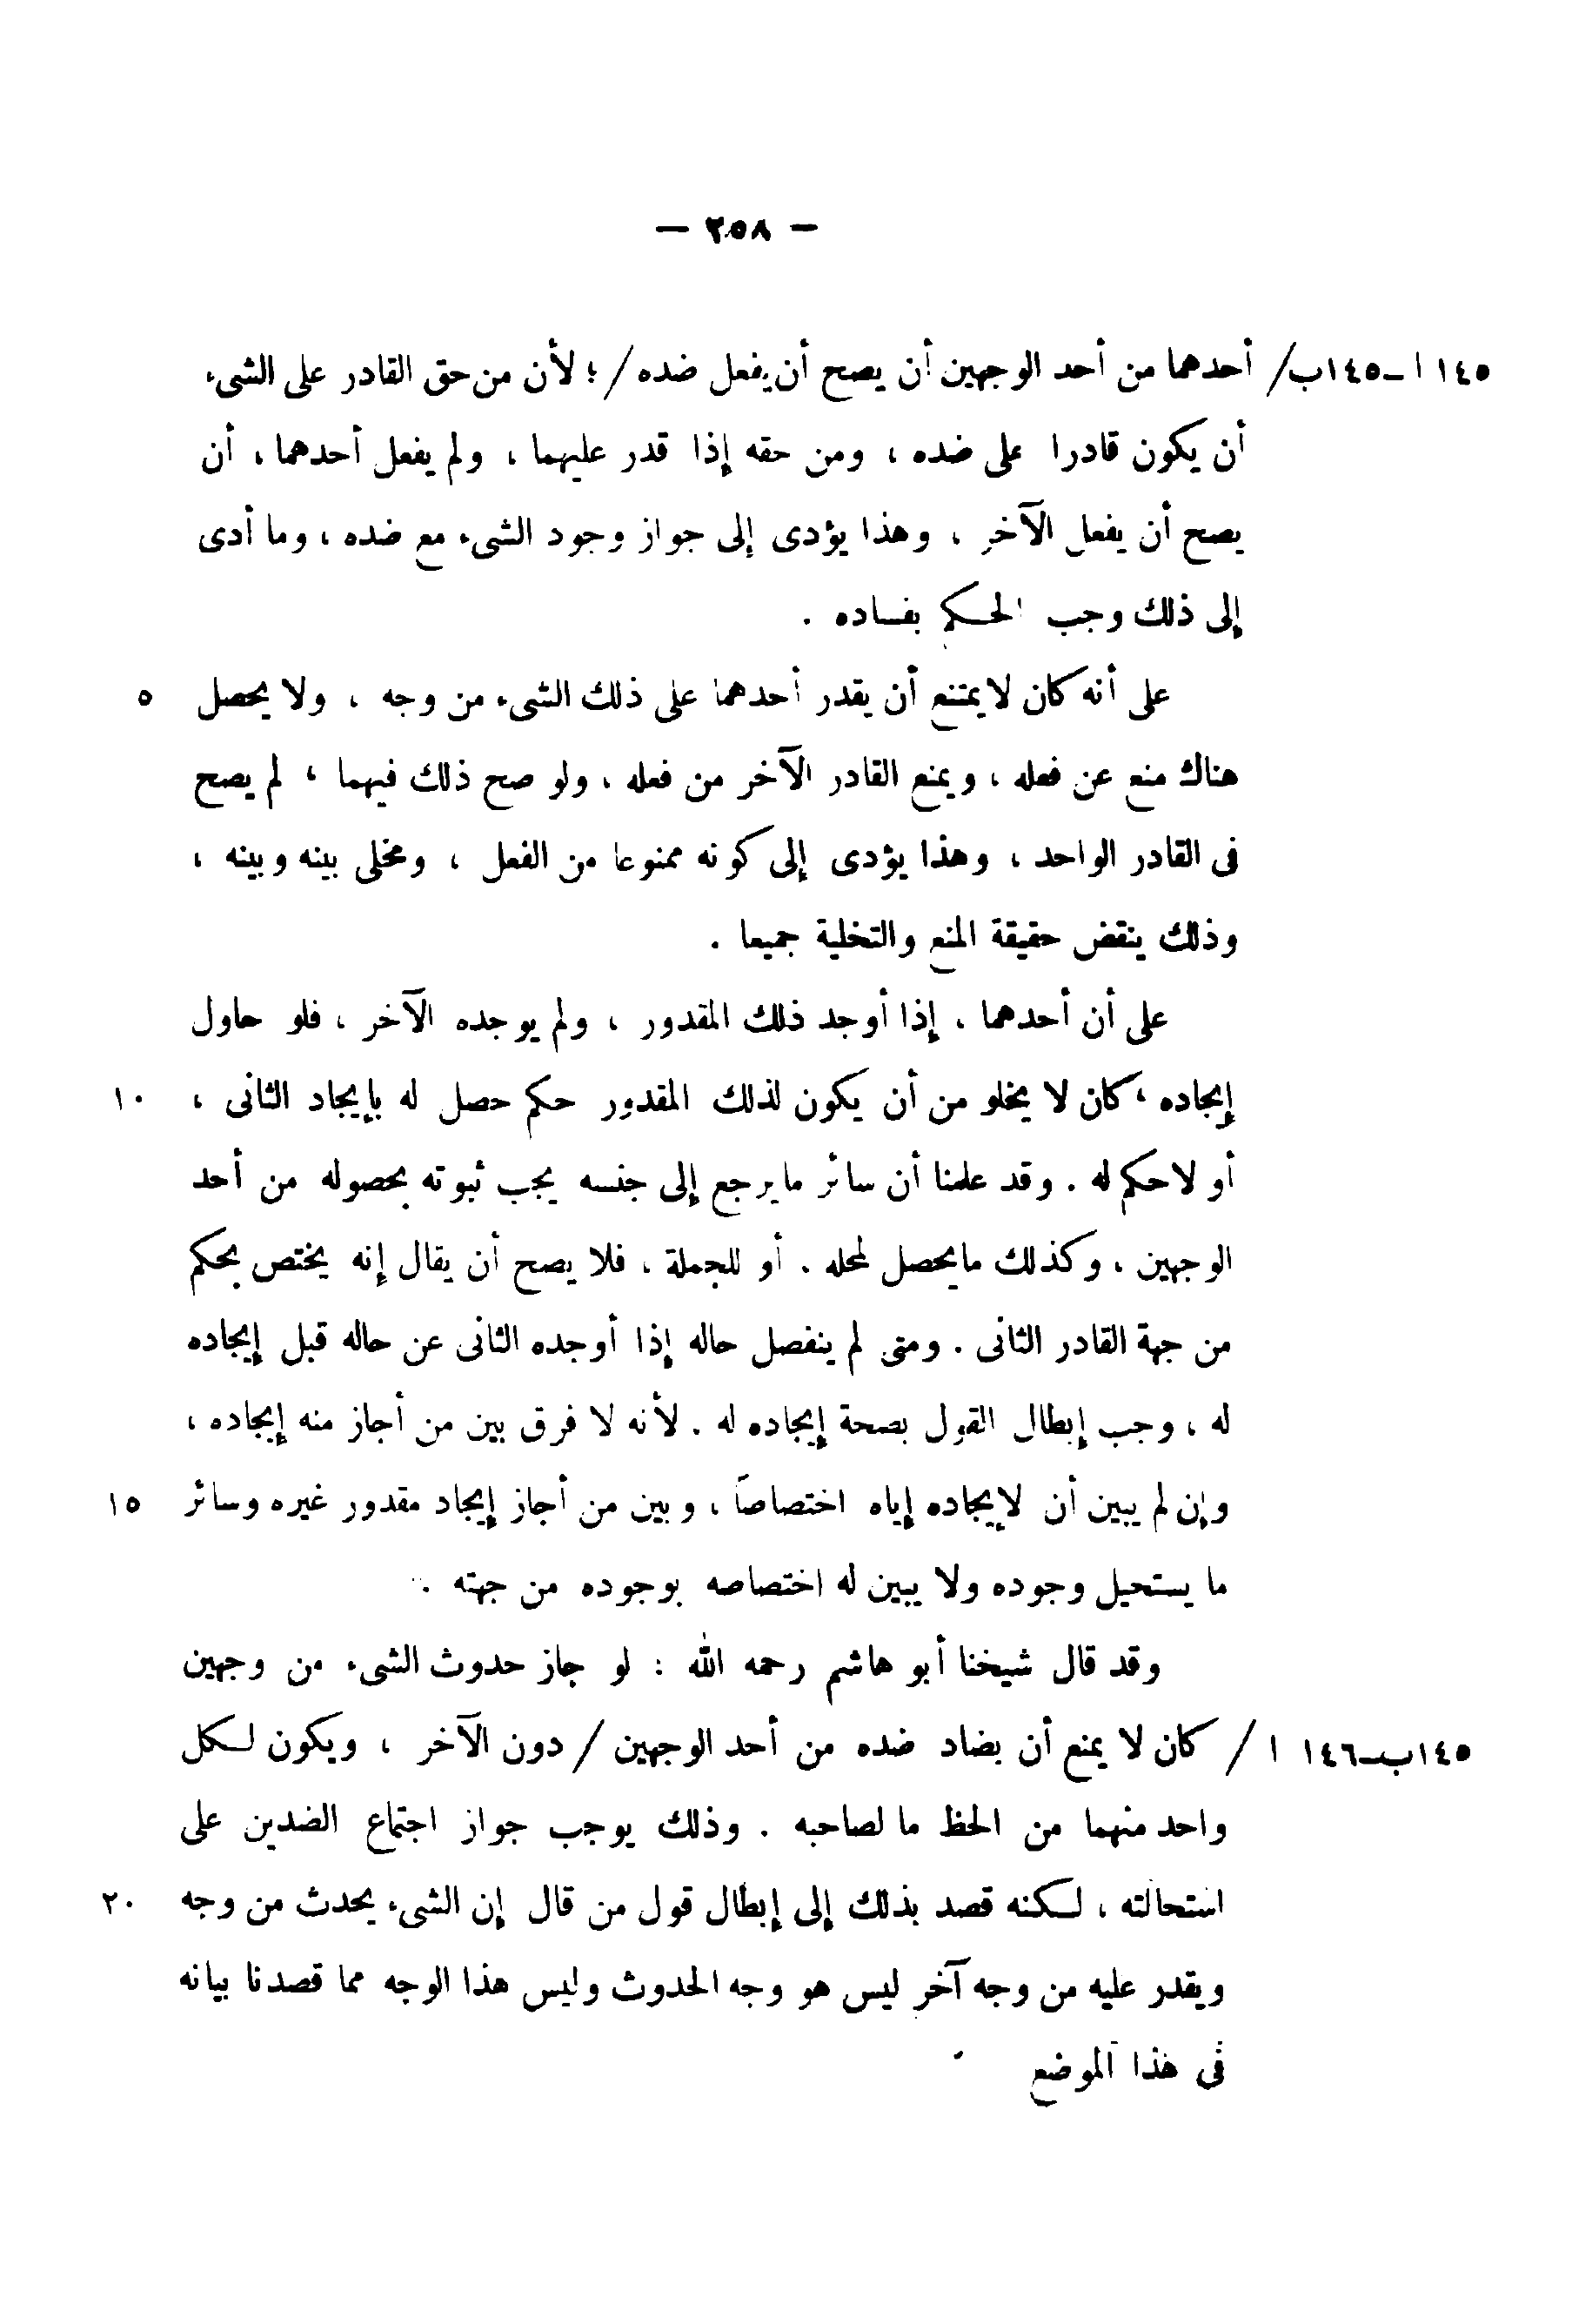 — ٢٥٨ —
١٤٥ ا ـ ١٤٥ب/ أحدهما من أحد الوجهين أن يصح أن يفعل ضده / ؛ لأن من حق القادر على الشىء
أن يكون قادرا على ضده ، ومن حقه إذا قدر عليهما ، ولم يفعل أحدهما ، أن
يصح أن يفعل الآخر ، وهذا يؤدى إلى جواز وجود الشىء مع ضده ، وما أدى
إلى ذلك وجب الحكم بفساده .
على أنه كان لا يمتنع أن يقدر أحدهما على ذلك الشىء من وجه ، ولا يحصل ٥
هناك منع عن فعله ، ويمنع القادر الآخر من فعله ، ولو صح ذلك فيهما ، لم يصح
فى القادر الواحد ، وهذا يؤدى إلى كونه ممنوعا من الفعل ، ومخلى بينه وبينه ،
وذلك ينقض حقيقة المنع والتخلية جميعا .
على أن أحدهما ، إذا أوجد ذلك المقدور ، ولم يوجده الآخر ، فلو حاول
إيجاده ، كان لا يخلو من أن يكون لذلك المقدور حكم حصل له بإيجاد الثانى ، ١٠
أو لا حكم له . وقد علمنا أن سائر ما يرجع إلى جنسه يجب ثبوته بحصوله من أحد
الوجهين ، وكذلك ما يحصل لمحله . أو للجملة ، فلا يصح أن يقال إنه يختص بحكم
من جهة القادر الثانى . ومتى لم ينفصل حاله إذا أوجده الثانى عن حاله قبل إيجاده
له ، وجب إبطال القول بصحة إيجاده له . لأنه لا فرق بين من أجاز منه إيجاده ،
وإن لم يبين أن لإيجاده إياه اختصاصاً ، وبين من أجاز إيجاد مقدور غيره وسائر ١٥
ما يستحيل وجوده ولا يبين له اختصاصه بوجوده من جهته .
وقد قال شيخنا أبو هاشم رحمه الله : لو جاز حدوث الشىء من وجهين
١٤٥ب ـ ١٤٦ ا / كان لا يمنع أن يضاد ضده من أحد الوجهين / دون الآخر ، ويكون لكل
واحد منهما من الحظ ما لصاحبه . وذلك يوجب جواز اجتماع الضدين على
استحالته ، لكنه قصد بذلك إلى إبطال قول من قال إن الشىء يحدث من وجه ٢٠
ويقدر عليه من وجه آخر ليس هو وجه الحدوث وليس هذا الوجه مما قصدنا بيانه
فى هذا الموضع .